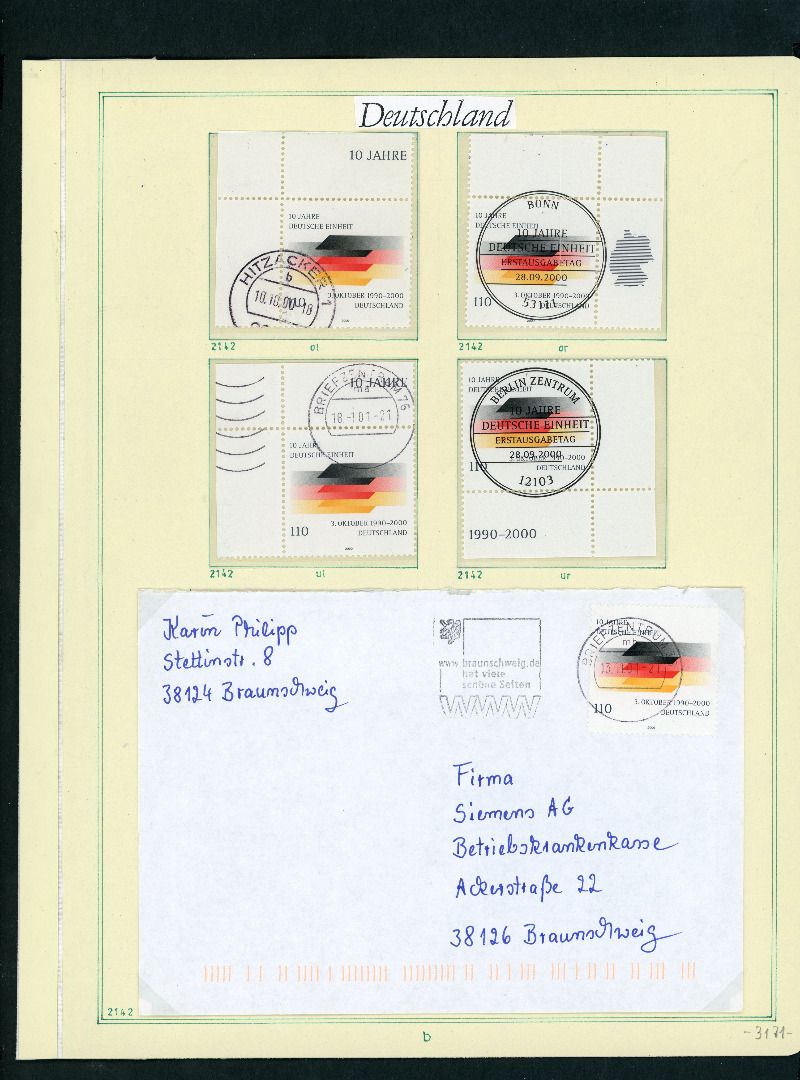 Deutschland
10 JAHRE
10 JAHRE
DEUTSCHE EINHEIT
3. OKTOBER 1990–2000
DEUTSCHLAND
HITZACKER 1
b
10.10.00-18
2142 ol
BONN
10 JAHRE
DEUTSCHE EINHEIT
10 JAHRE
DEUTSCHE EINHEIT
ERSTAUSGABETAG
28.09.2000
110
3. OKTOBER 1990–2000
DEUTSCHLAND
53111
2142 or
10 JAHRE
BRIEFZENTRUM 76
ma
18.-1.01-21
10 JAHRE
DEUTSCHE EINHEIT
110
3. OKTOBER 1990–2000
DEUTSCHLAND
2142 ul
10 JAHRE
BERLIN ZENTRUM
10 JAHRE
DEUTSCHE EINHEIT
ERSTAUSGABETAG
28.09.2000
110
1990–2000
DEUTSCHLAND
12103
1990–2000
2142 ur
Karin Philipp
Stettinstr. 8
38124 Braunschweig
www.braunschweig.de
hat viele
schöne Seiten
10 JAHRE
BRIEFZENTRUM
mb
110
3. OKTOBER 1990–2000
DEUTSCHLAND
Firma
Siemens AG
Betriebskrankenkasse
Ackerstraße 22
38126 Braunschweig
2142
b
-3171-